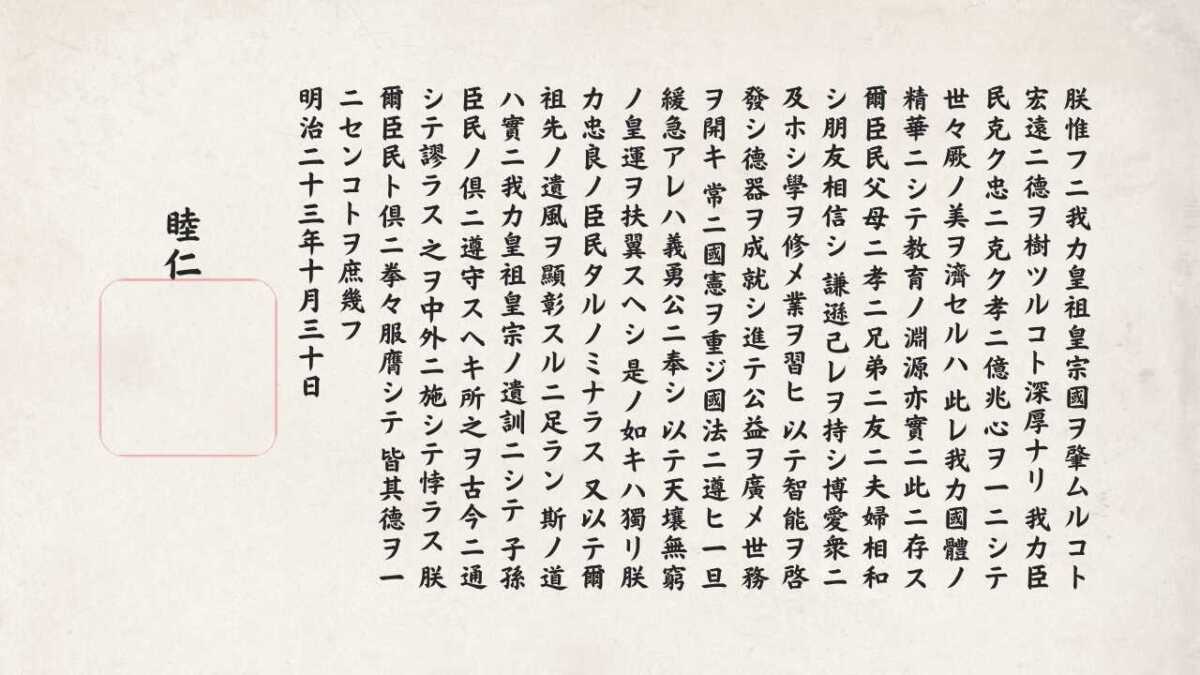 朕惟フニ我カ皇祖皇宗國ヲ肇ムルコト
宏遠ニ德ヲ樹ツルコト深厚ナリ 我カ臣
民克ク忠ニ克ク孝ニ億兆心ヲ一ニシテ
世々厥ノ美ヲ濟セルハ 此レ我カ國體ノ
精華ニシテ教育ノ淵源亦實ニ此ニ存ス
爾臣民父母ニ孝ニ兄弟ニ友ニ夫婦相和
シ朋友相信シ 謙遜己レヲ持シ博愛衆ニ
及ホシ學ヲ修メ業ヲ習ヒ 以テ智能ヲ啓
發シ德器ヲ成就シ進テ公益ヲ廣メ世務
ヲ開キ 常ニ國憲ヲ重ジ國法ニ遵ヒ一旦
緩急アレハ義勇公ニ奉シ 以テ天壤無窮
ノ皇運ヲ扶翼スヘシ 是ノ如キハ獨リ朕
カ忠良ノ臣民タルノミナラス 又以テ爾
祖先ノ遺風ヲ顯彰スルニ足ラン 斯ノ道
ハ實ニ我カ皇祖皇宗ノ遺訓ニシテ 子孫
臣民ノ倶ニ遵守スヘキ所之ヲ古今ニ通
シテ謬ラス 之ヲ中外ニ施シテ悖ラス 朕
爾臣民ト倶ニ拳々服膺シテ 皆其德ヲ一
ニセンコトヲ庶幾フ
明治二十三年十月三十日
睦仁